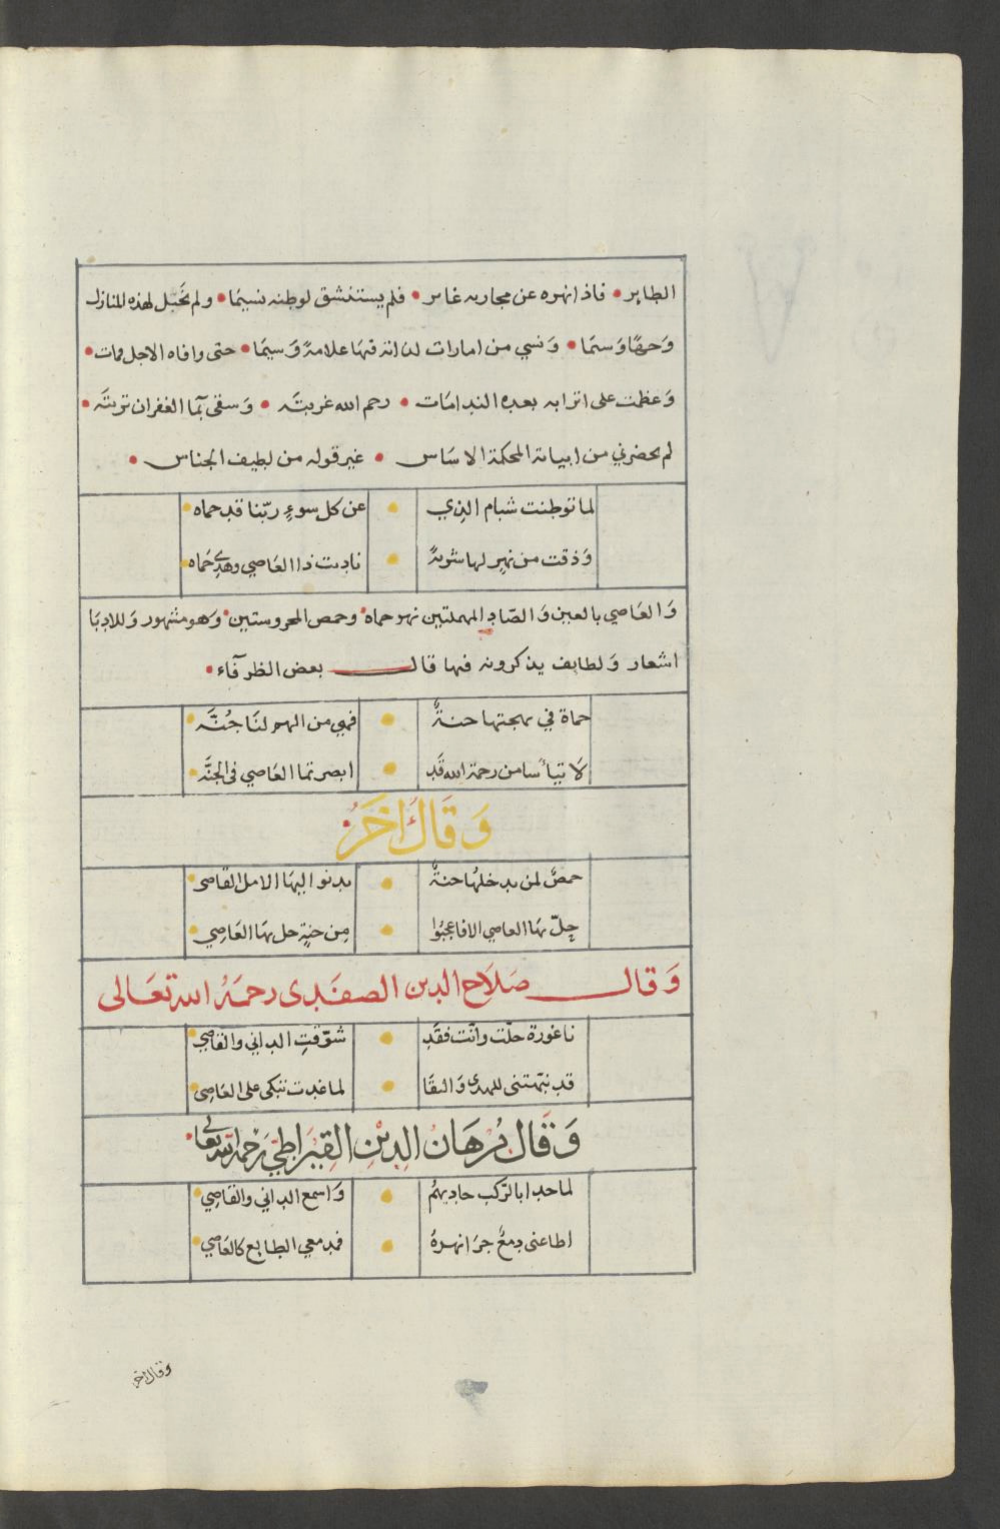 الطاير • فاذا نهره عن مجاريه غاير • فلم يستنشق لوطنه نسيمًا • ولم تخيل لهذه المنازل
وَجهًا وَسيمًا • وَنسي من امارات لذاته فيهَا علامةً وَسيمًا • حتى وافاه الاجل فمات •
وَعظمت على اترابه بعده الندامَات • رحم الله غربتَه • وَسقى بمآ الغفران تربتَه •
لم يحضرني من ابياته المحكمة الاسَاس • غير قوله من لطيف الجناس •
لما توطنت شبام الذي • عن كل سوءٍ ربّنا قد حماه •
وَذقت من نهرٍ لها شربةً • ناديت ذا العَاصي وهذي حَماه •
وَالعَاصي بالعين وَالصّاد المهملتين نهر حماه • وحمص المحروستين • وَهو مشهور وَللادبَا
اشعار وَلطايف يذكرونه فيها قال بعض الظرفآء •
حماة في بهجتها جنةٌ • فهي من الهم لنَا جُنَّه •
لاَ تيأسا من رحمة الله قَد • ابصرتما العَاصي في الجنَّه •
وَقَالَ اخَرُ •
حمصٌ لمن يدخلهُا جنةٌ • يدنو اليهَا الامل القاصى •
حِلّ بهَا العاصي الا فاعجَبُوا • مِن جنةٍ حل بهَا العَاصِي •
وَقال صَلاَح الدين الصفَدى رحمَهُ الله تعَالى
ناعُورة حنّت وانّت فقَد • شوّقتِ الداني والقاصِي •
قد نبّهتنى للهدى وَالبقَا • لما غدت تبكى على العَاصِى •
وَقَالَ بُرهَانُ الدِين القِيرَاطِيّ رَحْمَهُ الله تعَالى •
لما حدا بالرّكب حاديهمُ • وَاسمع الداني والقَاصِي •
اطاعنى دمعٌ جرَا نهرهُ • فدمعي الطايع كالعَاصِي •
وقال اخر